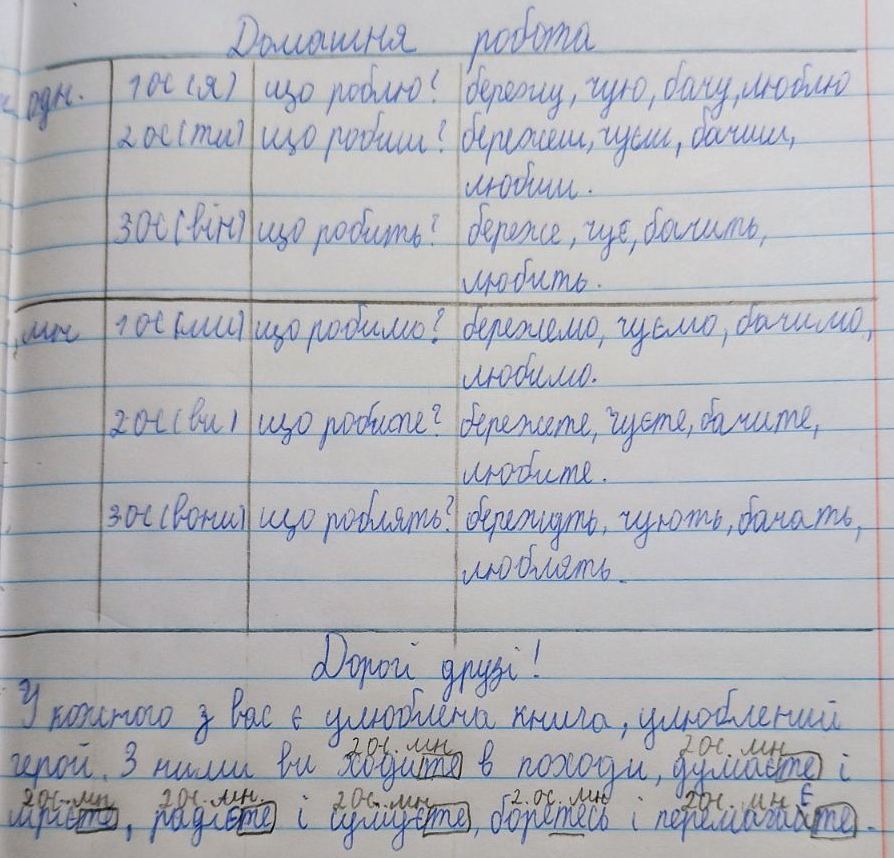 Домашня робота
одн. 1ос(я) що роблю? бережу, чую, бачу, люблю
2ос(ти) що робиш? бережеш, чуєш, бачиш,
любиш.
3ос(він) що робить? береже, чує, бачить,
любить.
мн 1ос(ми) що робимо? бережемо, чуємо, бачимо,
любимо.
2ос(ви) що робите? бережете, чуєте, бачите,
любите.
3ос(вони) що роблять? бережуть, чують, бачать,
люблять.
Дорогі друзі!
У кожного з вас є улюблена книга, улюблений
2ос. мн 2ос. мн.
герой. З ними ви ходите в походи, думаєте і
2ос. мн 2ос. мн. 2ос. мн. 2. ос. мн 2ос. мн є
мрієте, радієте і сумуєте, боретесь і перемагаate.